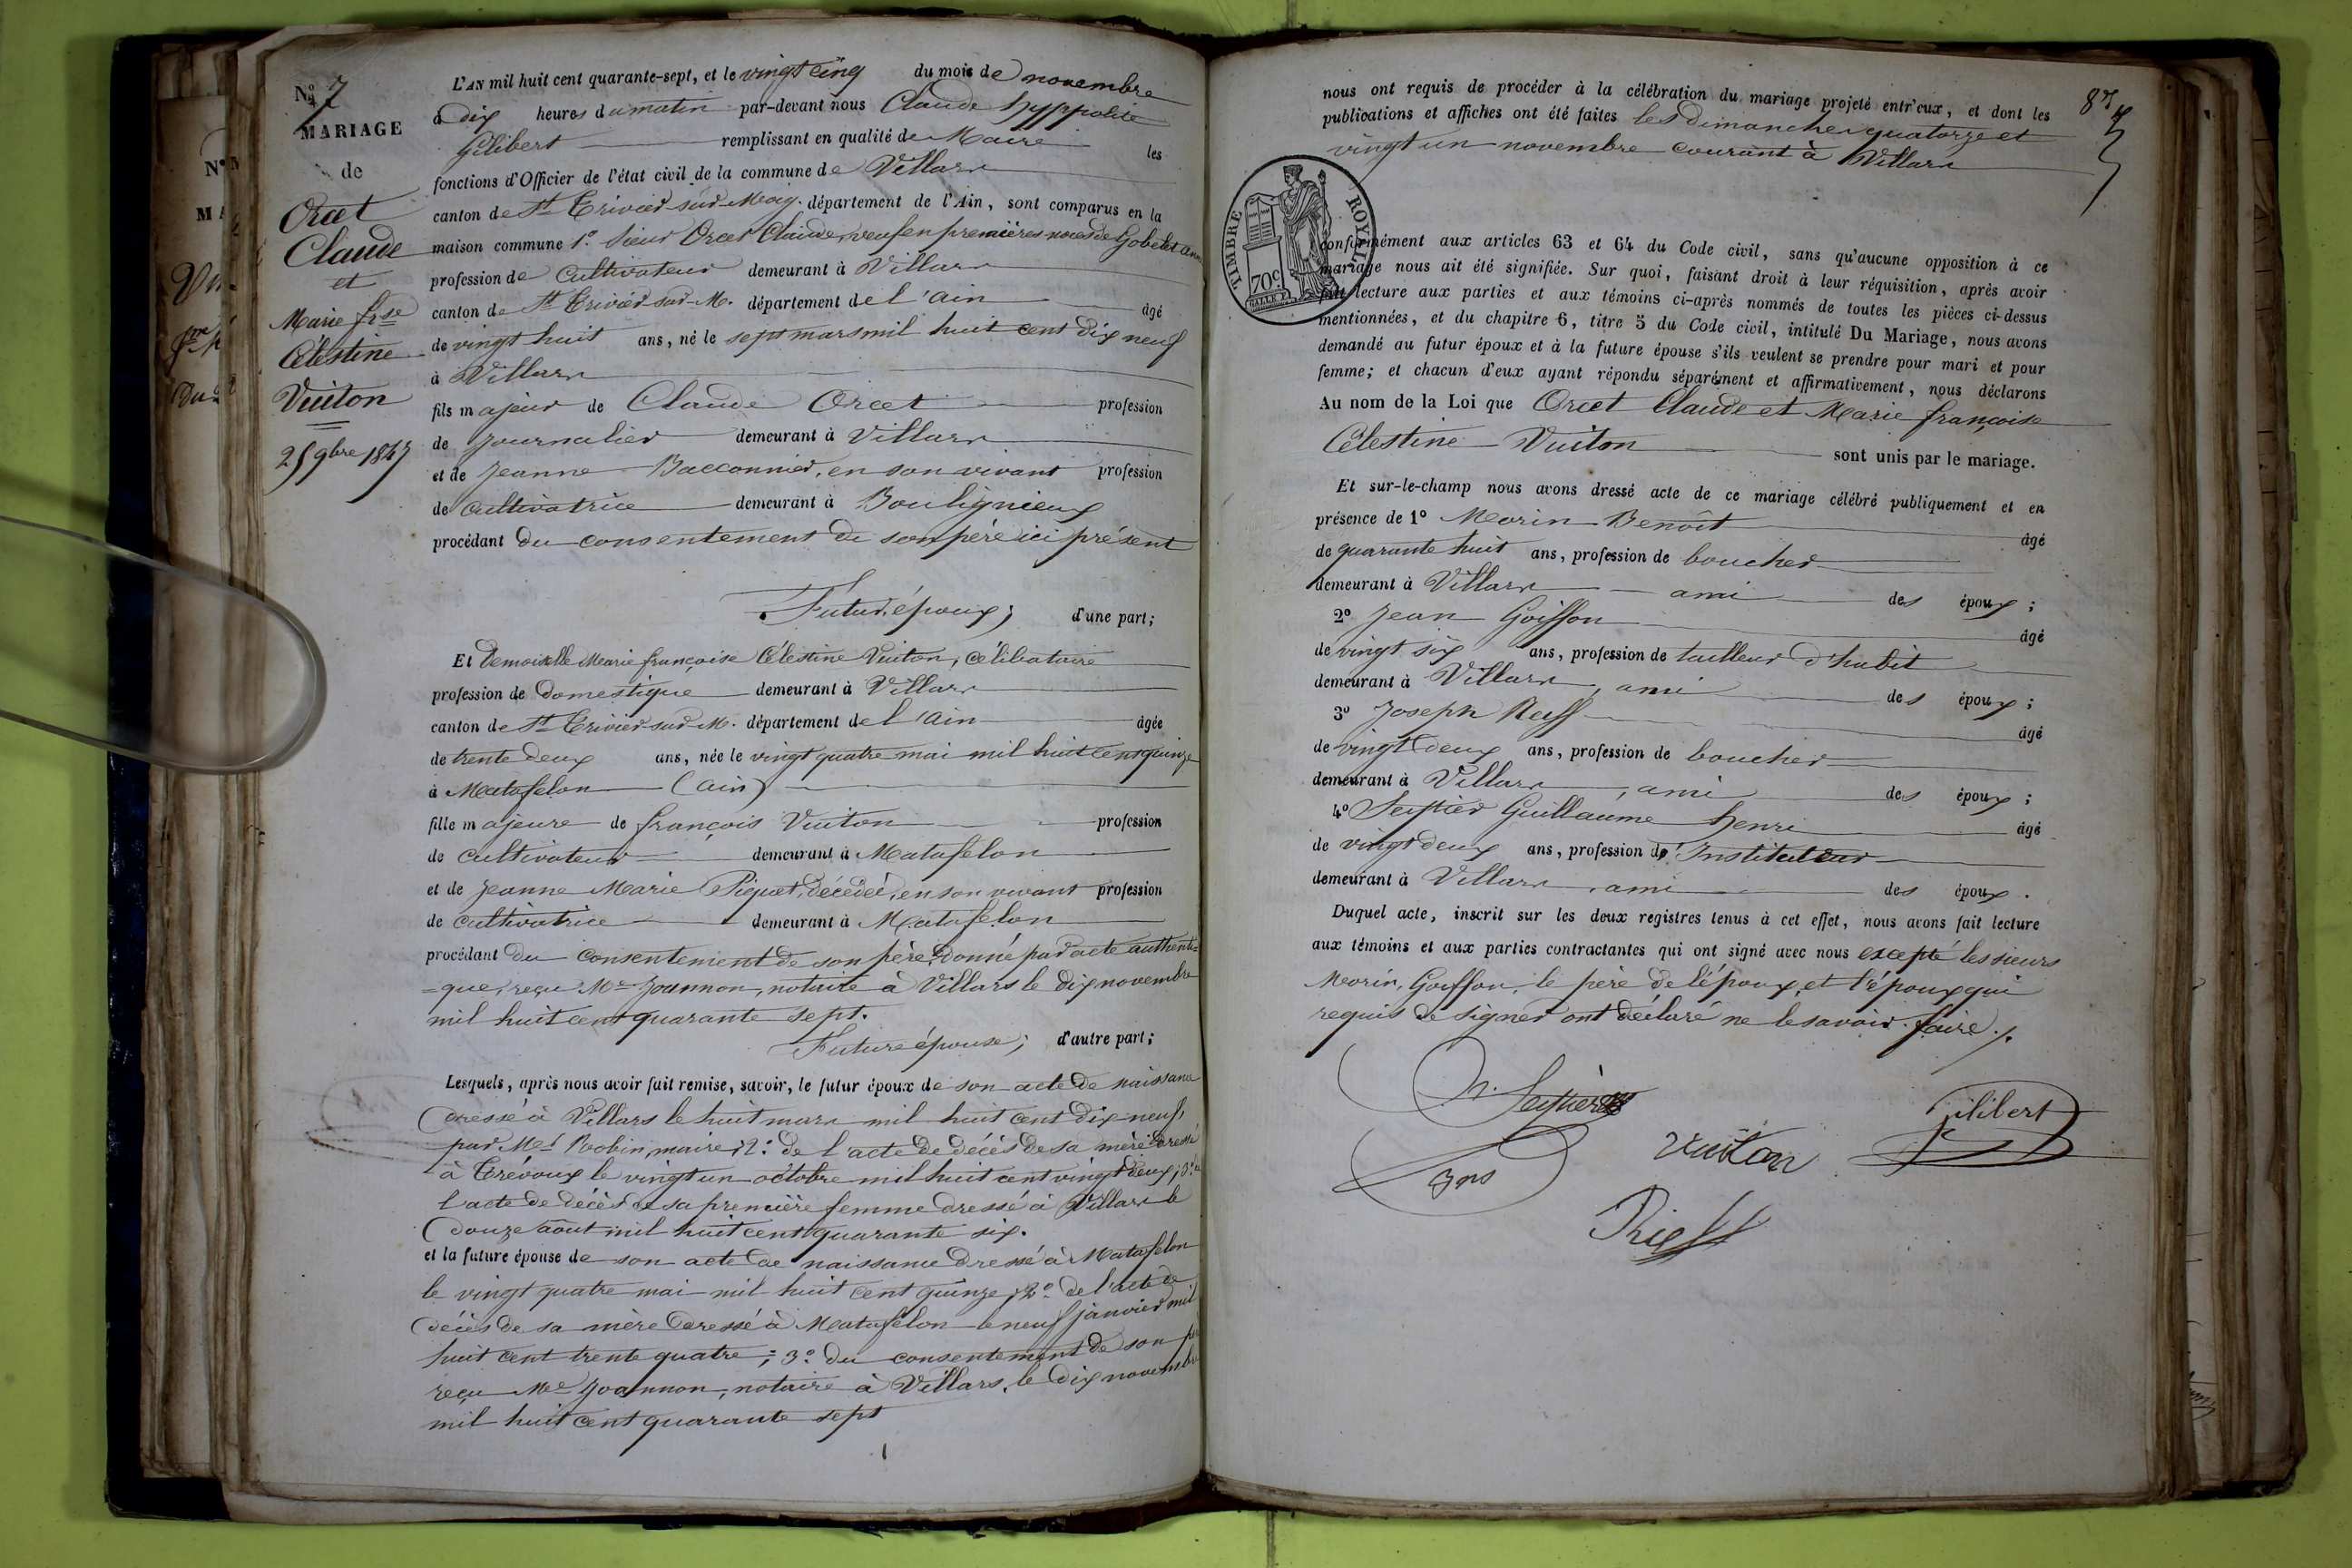 Nº 7
MARIAGE
de
Orcet
Claude
et
Marie frse
Célestine
Vuiton
25 9bre 1847
L'AN mil huit cent quarante-sept, et le vingt cinq du mois de novembre
à dix heures du matin par-devant nous Claude hyppolite
Gilibert remplissant en qualité de Maire les
fonctions d'Officier de l'état civil de la commune de Villars
canton de St Trivier-sur-Moig. département de l'Ain, sont comparus en la
maison commune 1º. Sieur Orcet Claude, veuf en premières noces de Gobelet
profession de Cultivateur demeurant à Villars
canton de St Trivier-sur-M. département de l'ain âgé
de vingt huit ans, né le sept mars mil huit cent dix neuf
à Villars
fils majeur de Claude Orcet profession
de journalier demeurant à Villars
et de Jeanne Bacconnier, en son vivant profession
de cultivatrice demeurant à Bouligneux
procédant du consentement de son père ici présent
Futur époux; d'une part;
Et Demoiselle Marie françoise Célestine Vuiton, célibataire
profession de domestique demeurant à Villars
canton de St Trivier-sur-M. département de l'ain âgée
de trente deux ans, née le vingt quatre mai mil huit cent quinze
à Matafelon (ain)
fille majeure de françois Vuiton profession
de cultivateur demeurant à Matafelon
et de Jeanne Marie Piquet, décédée, en son vivant profession
de cultivatrice demeurant à Matafelon
procédant du consentement de son père, donné par acte authenti=
=que, reçu Me Joannon, notaire à Villars le dix novembre
mil huit cent quarante sept.
Future épouse; d'autre part;
Lesquels, après nous avoir fait remise, savoir, le futur époux de son acte de naissance
dressé à Villars le huit mars mil huit cent dix neuf,
par Mr Robin, maire; 2º. de l'acte de décès de sa mère dressé
à Trévoux le vingt un octobre mil huit cent vingt deux; 3º.
l'acte de décès de sa première femme dressé à Villars le
douze août mil huit cent quarante six.
et la future épouse de son acte de naissance dressé à Matafelon
le vingt quatre mai mil huit cent quinze; 2º. de l'acte de
décès de sa mère dressé à Matafelon le neuf janvier mil
huit cent trente quatre; 3º. du consentement de son
reçu Me Joannon, notaire à Villars, le dix novembre
mil huit cent quarante sept
87
nous ont requis de procéder à la célébration du mariage projeté entr'eux, et dont les
publications et affiches ont été faites les dimanches quatorze et
vingt un novembre courant à Villars
TIMBRE ROYAL
70c.
conformément aux articles 63 et 64 du Code civil, sans qu'aucune opposition à ce
mariage nous ait été signifiée. Sur quoi, faisant droit à leur réquisition, après avoir
fait lecture aux parties et aux témoins ci-après nommés de toutes les pièces ci-dessus
mentionnées, et du chapitre 6, titre 5 du Code civil, intitulé Du Mariage, nous avons
demandé au futur époux et à la future épouse s'ils veulent se prendre pour mari et pour
femme; et chacun d'eux ayant répondu séparément et affirmativement, nous déclarons
Au nom de la Loi que Orcet Claude et Marie françoise
Célestine Vuiton sont unis par le mariage.
Et sur-le-champ nous avons dressé acte de ce mariage célébré publiquement et en
présence de 1º Morin Benoît âgé
de quarante huit ans, profession de boucher
demeurant à Villars ami des époux;
2º Jean Goiffon âgé
de vingt six ans, profession de tailleur d'habit
demeurant à Villars, ami des époux;
3º Joseph Reiff âgé
de vingt deux ans, profession de boucher
demeurant à Villars, ami des époux;
4º Seystier Guillaume henri âgé
de vingt deux ans, profession de Instituteur
demeurant à Villars, ami des époux.
Duquel acte, inscrit sur les deux registres tenus à cet effet, nous avons fait lecture
aux témoins et aux parties contractantes qui ont signé avec nous excepté les sieurs
Morin, Goiffon, le père de l'époux, et l'époux qui
requis de signer ont déclaré ne le savoir faire./.
Gilibert
Vuiton